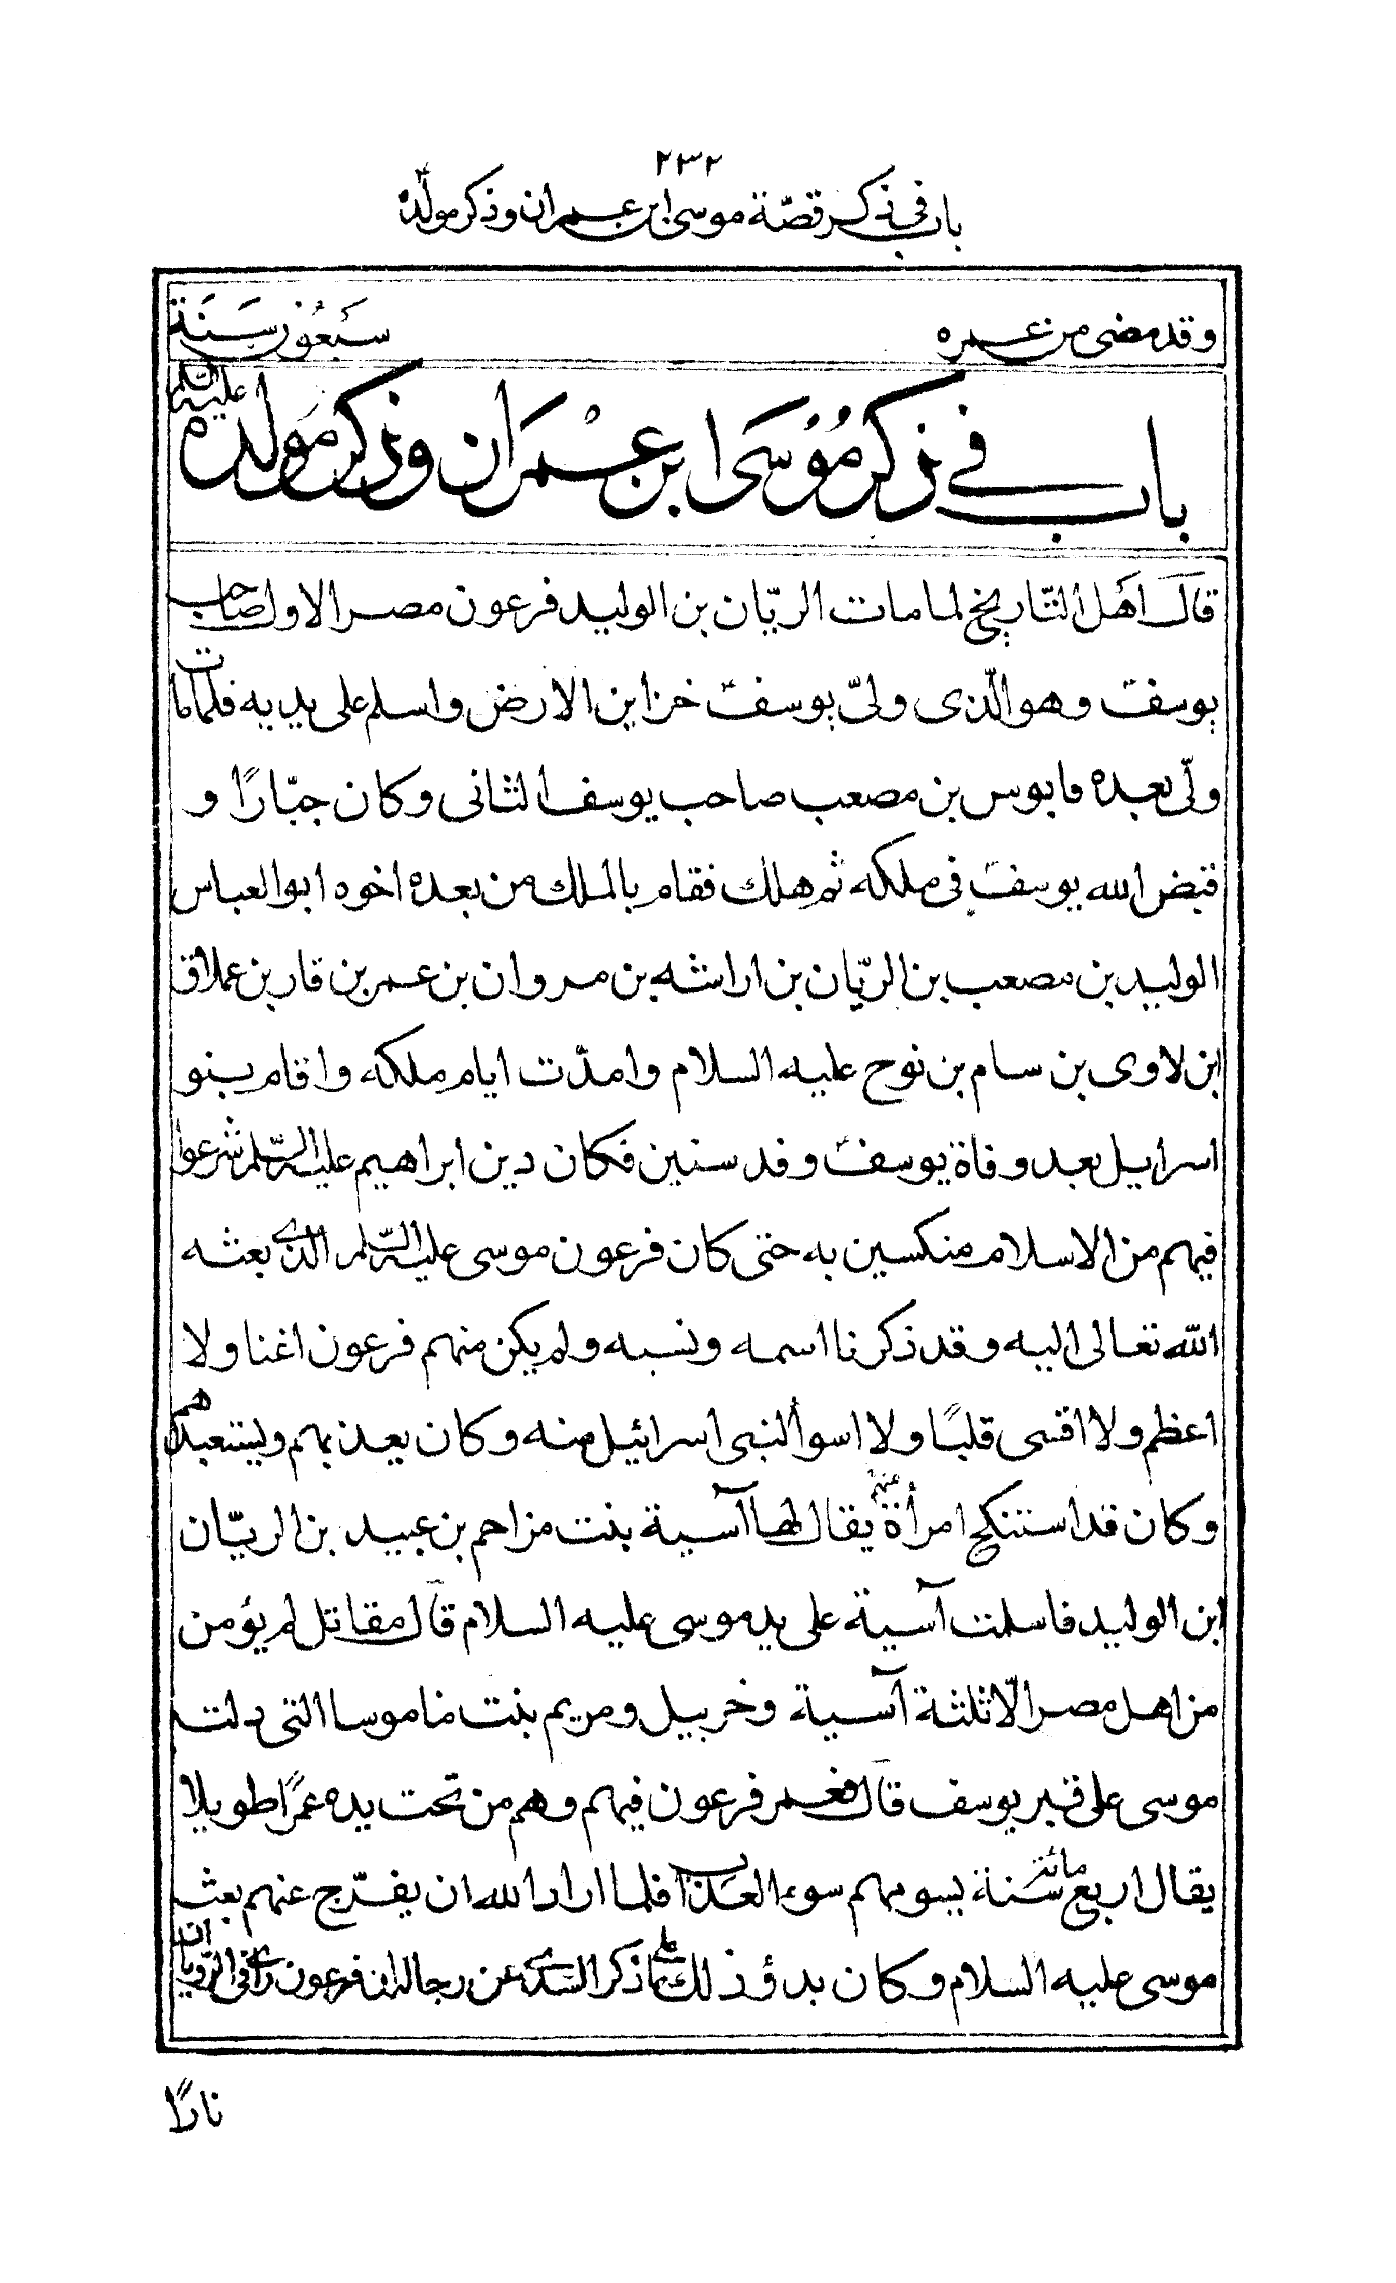 ٢٣٢
باب في ذكر قصّة موسى ابن عمران وذكر مولده
وقد مضى من عمره سَبعُون سَنَة
باب في ذكر مُوُسَى ابن عِمْرَان وذكر مَولده عليه السّلم
قالَ اَهَل التّاريخ لما مات الريّان بن الوليد فرعون مصر الاول صاحب
يوسف وهو الّذى ولىّ يوسف خزاين الارض واسلم على يديه فلما مات
ولّى بعده قابوس بن مصعب صاحب يوسف الثانى وكان جبّارًا و
قبض الله يوسف فى ملكه ثم هلك فقام بالملك من بعده اخوه ابوالعباس
الوليد بن مصعب بن الريّان بن اراشه بن مروان بن عمر بن قار بن عملاق
ابن لاوى بن سام بن نوح عليه السلام وامدّت ايام ملكه واقام بنو
اسرايل بعد وفاة يوسف وقد سنين فكان دين ابراهيم عليه السّلم شرعوا
فيهم من الاسلام منكسين به حتى كان فرعون موسى عليه السّلم الذى بعثه
الله تعالى اليه وقد ذكرنا اسمه ونسبه ولم يكن منهم فرعون اغنا ولا
اعظم ولا اقسى قلبًا ولا اسوأ لنبى اسرائيل منه وكان يعذبهم ويستعبدهم
وكان قد استنكح امرأة منهم يقال لها آسية بنت مزاحم بن عبيد بن الريّان
ابن الوليد فاسلمت آسية على يد موسى عليه السلام قالَ مقاتل لم يؤمن
من اهل مصر الّا ثلثة آسية وخربيل ومريم بنت ناموسا التى دلت
موسى على قبر يوسف قالَ فغمر فرعون فيهم وهم من تحت يده عمرًا طويلا
يقال اربع مائة سَنة يسومهم سوء العذاب فلما اراد الله ان يفرّج عنهم بعث
موسى عليه السلام وكان بدؤ ذلك على ما ذكر السّدى عن رجاله ان فرعون راى فى الرّويا ان
نارًا